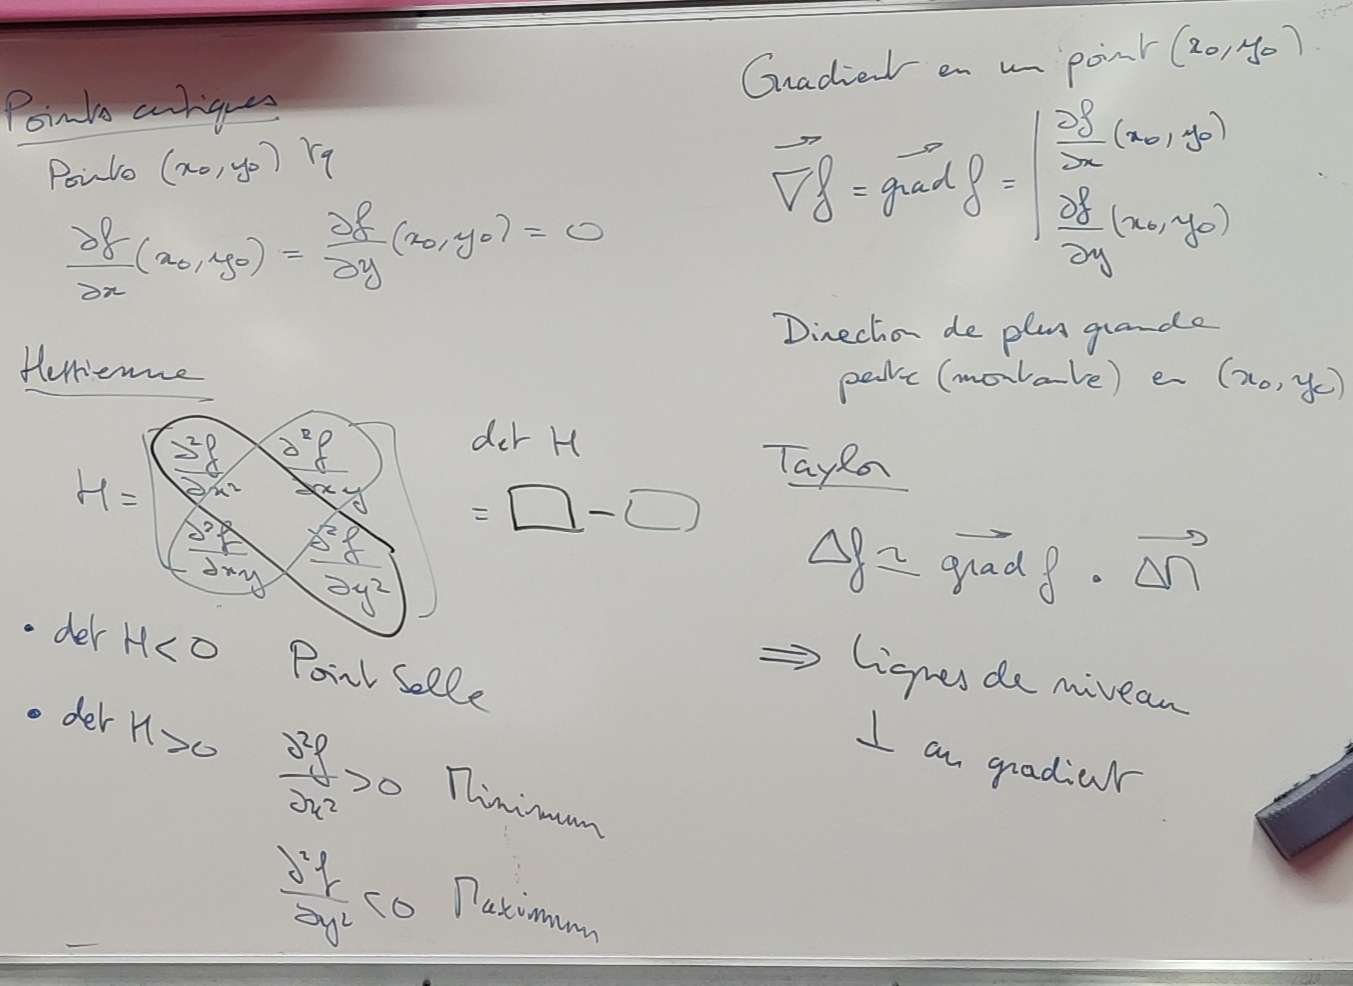 Points critiques
Points (x₀, y₀) tq
∂f/∂x (x₀, y₀) = ∂f/∂y (x₀, y₀) = 0
Hessienne
H = [ ∂²f/∂x² ∂²f/∂xy
∂²f/∂xy ∂²f/∂y² ]
det H
= □ - □
• det H < 0 Point Selle
• det H > 0 ∂²f/∂x² > 0 Minimum
∂²f/∂y² < 0 Maximum
Gradient en un point (x₀, y₀)
∇⃗f = grad⃗ f = | ∂f/∂x (x₀, y₀)
∂f/∂y (x₀, y₀)
Direction de plus grande
pente (montante) en (x₀, y₀)
Taylor
Δf ≃ grad⃗ f . Δr⃗
⇒ lignes de niveau
⊥ au gradient